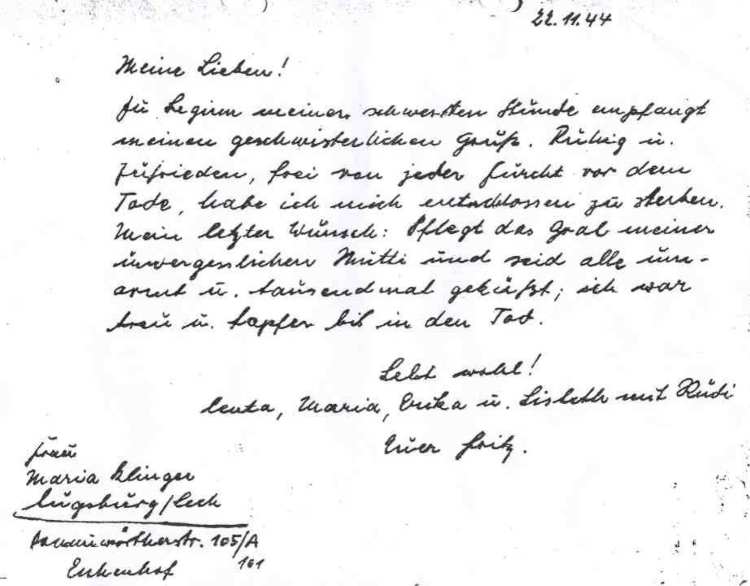 22.11.44
Meine Lieben!
Zu Beginn meiner schwersten Stunde empfangt
meinen geschwisterlichen Gruß. Ruhig u.
zufrieden, frei von jeder Furcht vor dem
Tode, habe ich mich entschlossen zu sterben.
Mein letzter Wunsch: Pflegt das Grab meiner
unvergesslichen Mutti und seid alle um-
armt u. tausendmal geküßt; ich war
treu u. tapfer bis in den Tod.
Lebt wohl!
Centa, Maria, Erika u. Lisbeth mit Rudi
Euer Fritz.
Frau
Maria Klinger
Augsburg/Lech
Donauwörtherstr. 105/A
101
Eschenhof